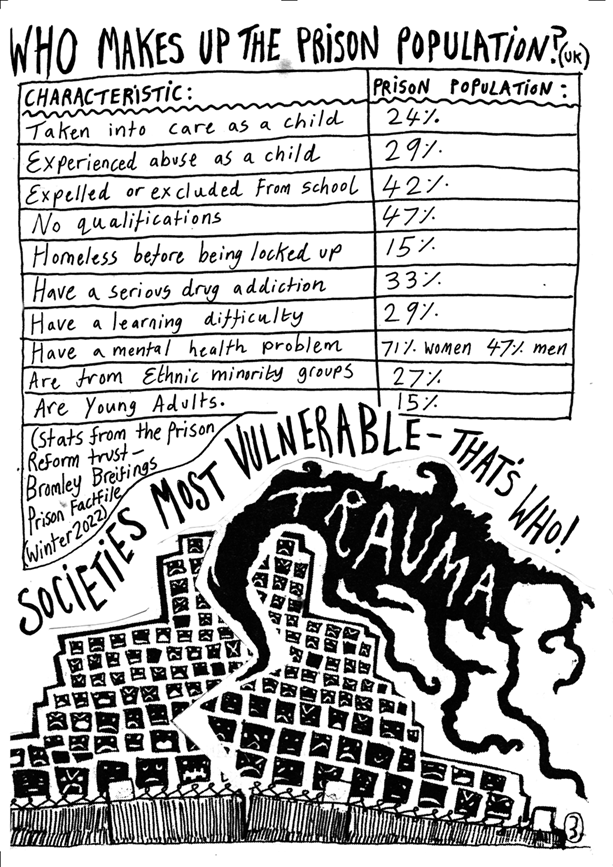 WHO MAKES UP THE PRISON POPULATION? (UK)
CHARACTERISTIC: PRISON POPULATION:
Taken into care as a child 24%
Experienced abuse as a child 29%
Expelled or excluded from school 42%
No qualifications 47%
Homeless before being locked up 15%
Have a serious drug addiction 33%
Have a learning difficulty 29%
Have a mental health problem 71% women 47% men
Are from Ethnic minority groups 27%
Are Young Adults. 15%
(Stats from the Prison
Reform trust –
Bromley Breifings
Prison Factfile
Winter 2022)
SOCIETIES MOST VULNERABLE – THAT'S WHO!
TRAUMA
3